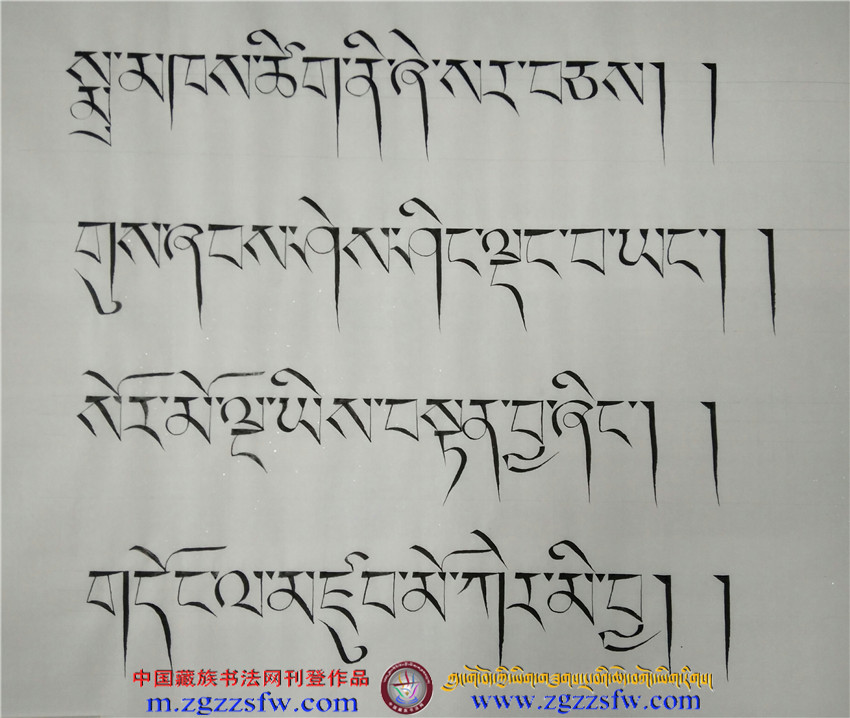 སྨྲ་མཁས་ཚིག་ནི་ཞེ་སར་བཅས། །
གུས་ཞབས་ཤེས་ཤིང་ལྡང་བ་ཡང་། །
སོར་མོ་ལྔ་ཡིས་བསྟན་བྱ་ཞིང་། །
གདོང་ལ་མཛུབ་མོ་ཀེར་མི་བྱ། །
中国藏族书法网刊登作品
m.zgzzsfw.com www.zgzzsfw.com